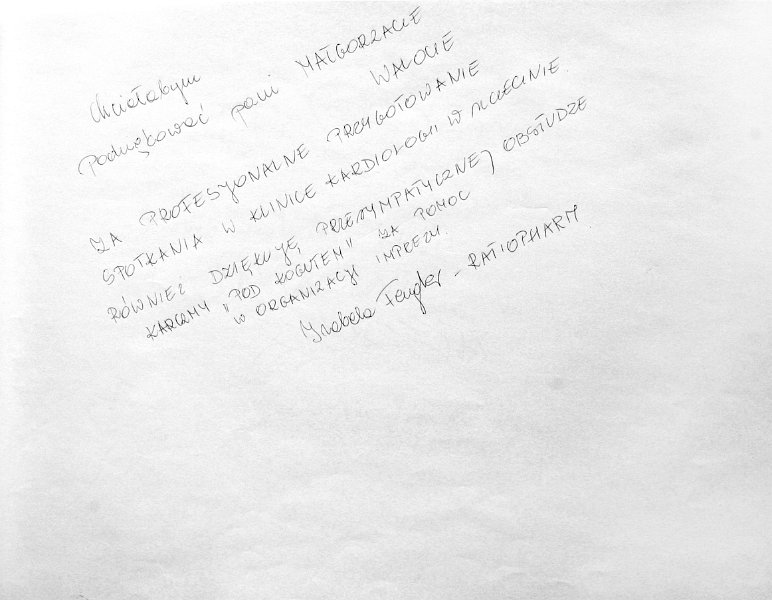 Chciałabym
Podziękować pani MAŁGORZACIE
WALOCIE
ZA PROFESJONALNE PRZYGOTOWANIE
SPOTKANIA W KLINICE KARDIOLOGII W SZCZECINIE.
RÓWNIEŻ DZIĘKUJĘ PRZESYMPATYCZNEJ OBSŁUDZE
KARCZMY "POD KOGUTEM" ZA POMOC
W ORGANIZACJI IMPREZY.
Izabela Fengler - RATIOPHARM.